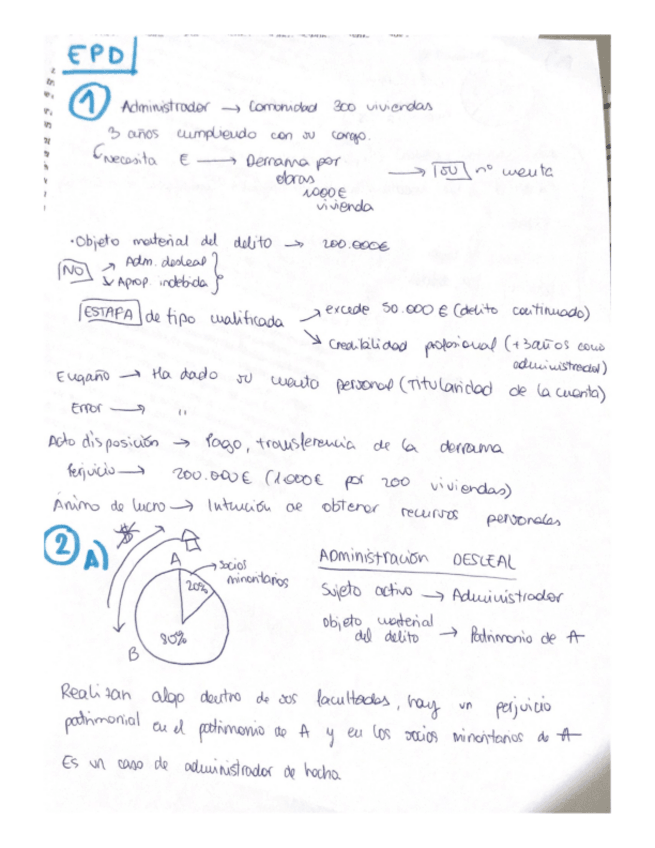 EPD
1 Administrador → Comunidad 300 viviendas
3 años cumpliendo con su cargo.
Necesita € → Derrama por obras 1000€ vivienda → [SU] nº cuenta
· Objeto material del delito → 200.000€
NO → Adm. desleal
↘ Aprop. indebida
ESTAFA de tipo cualificada → excede 50.000 € (delito continuado)
↘ Credibilidad profesional (+3 años como administrador)
Engaño → Ha dado su cuenta personal (Titularidad de la cuenta)
Error → "
Acto disposición → Pago, transferencia de la derrama
Perjuicio → 200.000€ (1000€ por 200 viviendas)
Ánimo de lucro → Intención de obtener recursos personales
2 A)
$
A
→ socios minoritarios
20%
80%
B
ADMINISTRACIÓN DESLEAL
Sujeto activo → Administrador
objeto material del delito → Patrimonio de A
Realizan algo dentro de sus facultades, hay un perjuicio
patrimonial en el patrimonio de A y en los socios minoritarios de A
Es un caso de administrador de hecho